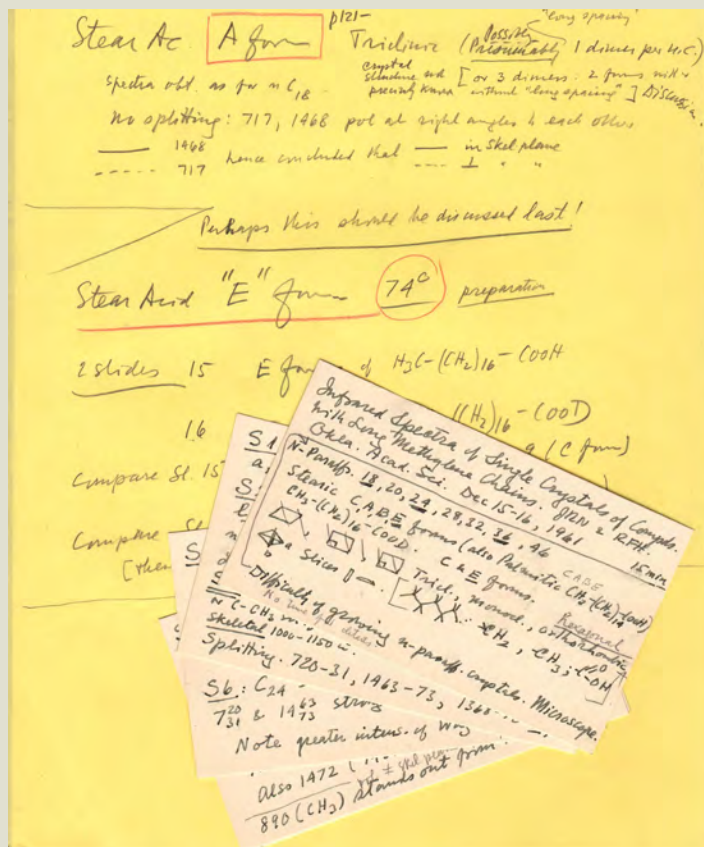 Stear Ac. A form p121- Triclinic (Possibly Presumably 1 dimer per u.c.)
"long spacing"
crystal structure not precisely known [or 3 dimers: 2 forms with & without "long spacing"] Discussion.
spectra obt. as for n C18
No splitting: 717, 1468 pol at right angles to each other
—— 1468
----- 717 hence concluded that —— in skel plane
---- ⊥ " "
Perhaps this should be discussed last!
Stear Acid "E" form 74° preparation
2 slides 15 E form of H3C-(CH2)16-COOH
16 (CH2)16-COOD
(C form)
Compare Sl. 15
Compare Sl
[then
Infrared Spectra of Single Crystals of Compds.
with Long Methylene Chains. JRN & RFH.
Okla. Acad. Sci. Dec 15-16, 1961 15 min
N-Paraffs. 18, 20, 24, 28, 32, 36, 46
Stearic C, A, B, E forms (also Palmitic CH3-(CH2)14-COOH)
C A B E
CH3-(CH2)16-COOD. C & E forms.
Tricl., monocl., orthorhombic
Hexagonal
Slices
CH2, CH3, C=O -OH
Difficulty of growing n-paraff. crystals. Microscope.
N C-CH3
Skeletal 1000-1150
Splitting. 720-31, 1463-73, 1360
S6: C24 -
720 31 & 1463 73 strong
Note greater intens. of wag
Also 1472
890 (CH3) stands out from